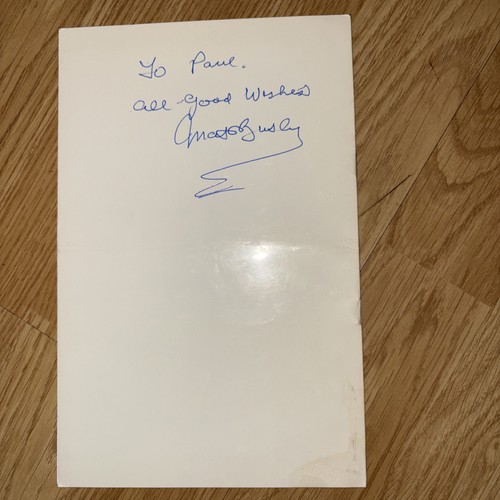 To Paul.
All Good Wishes
Matt Busby